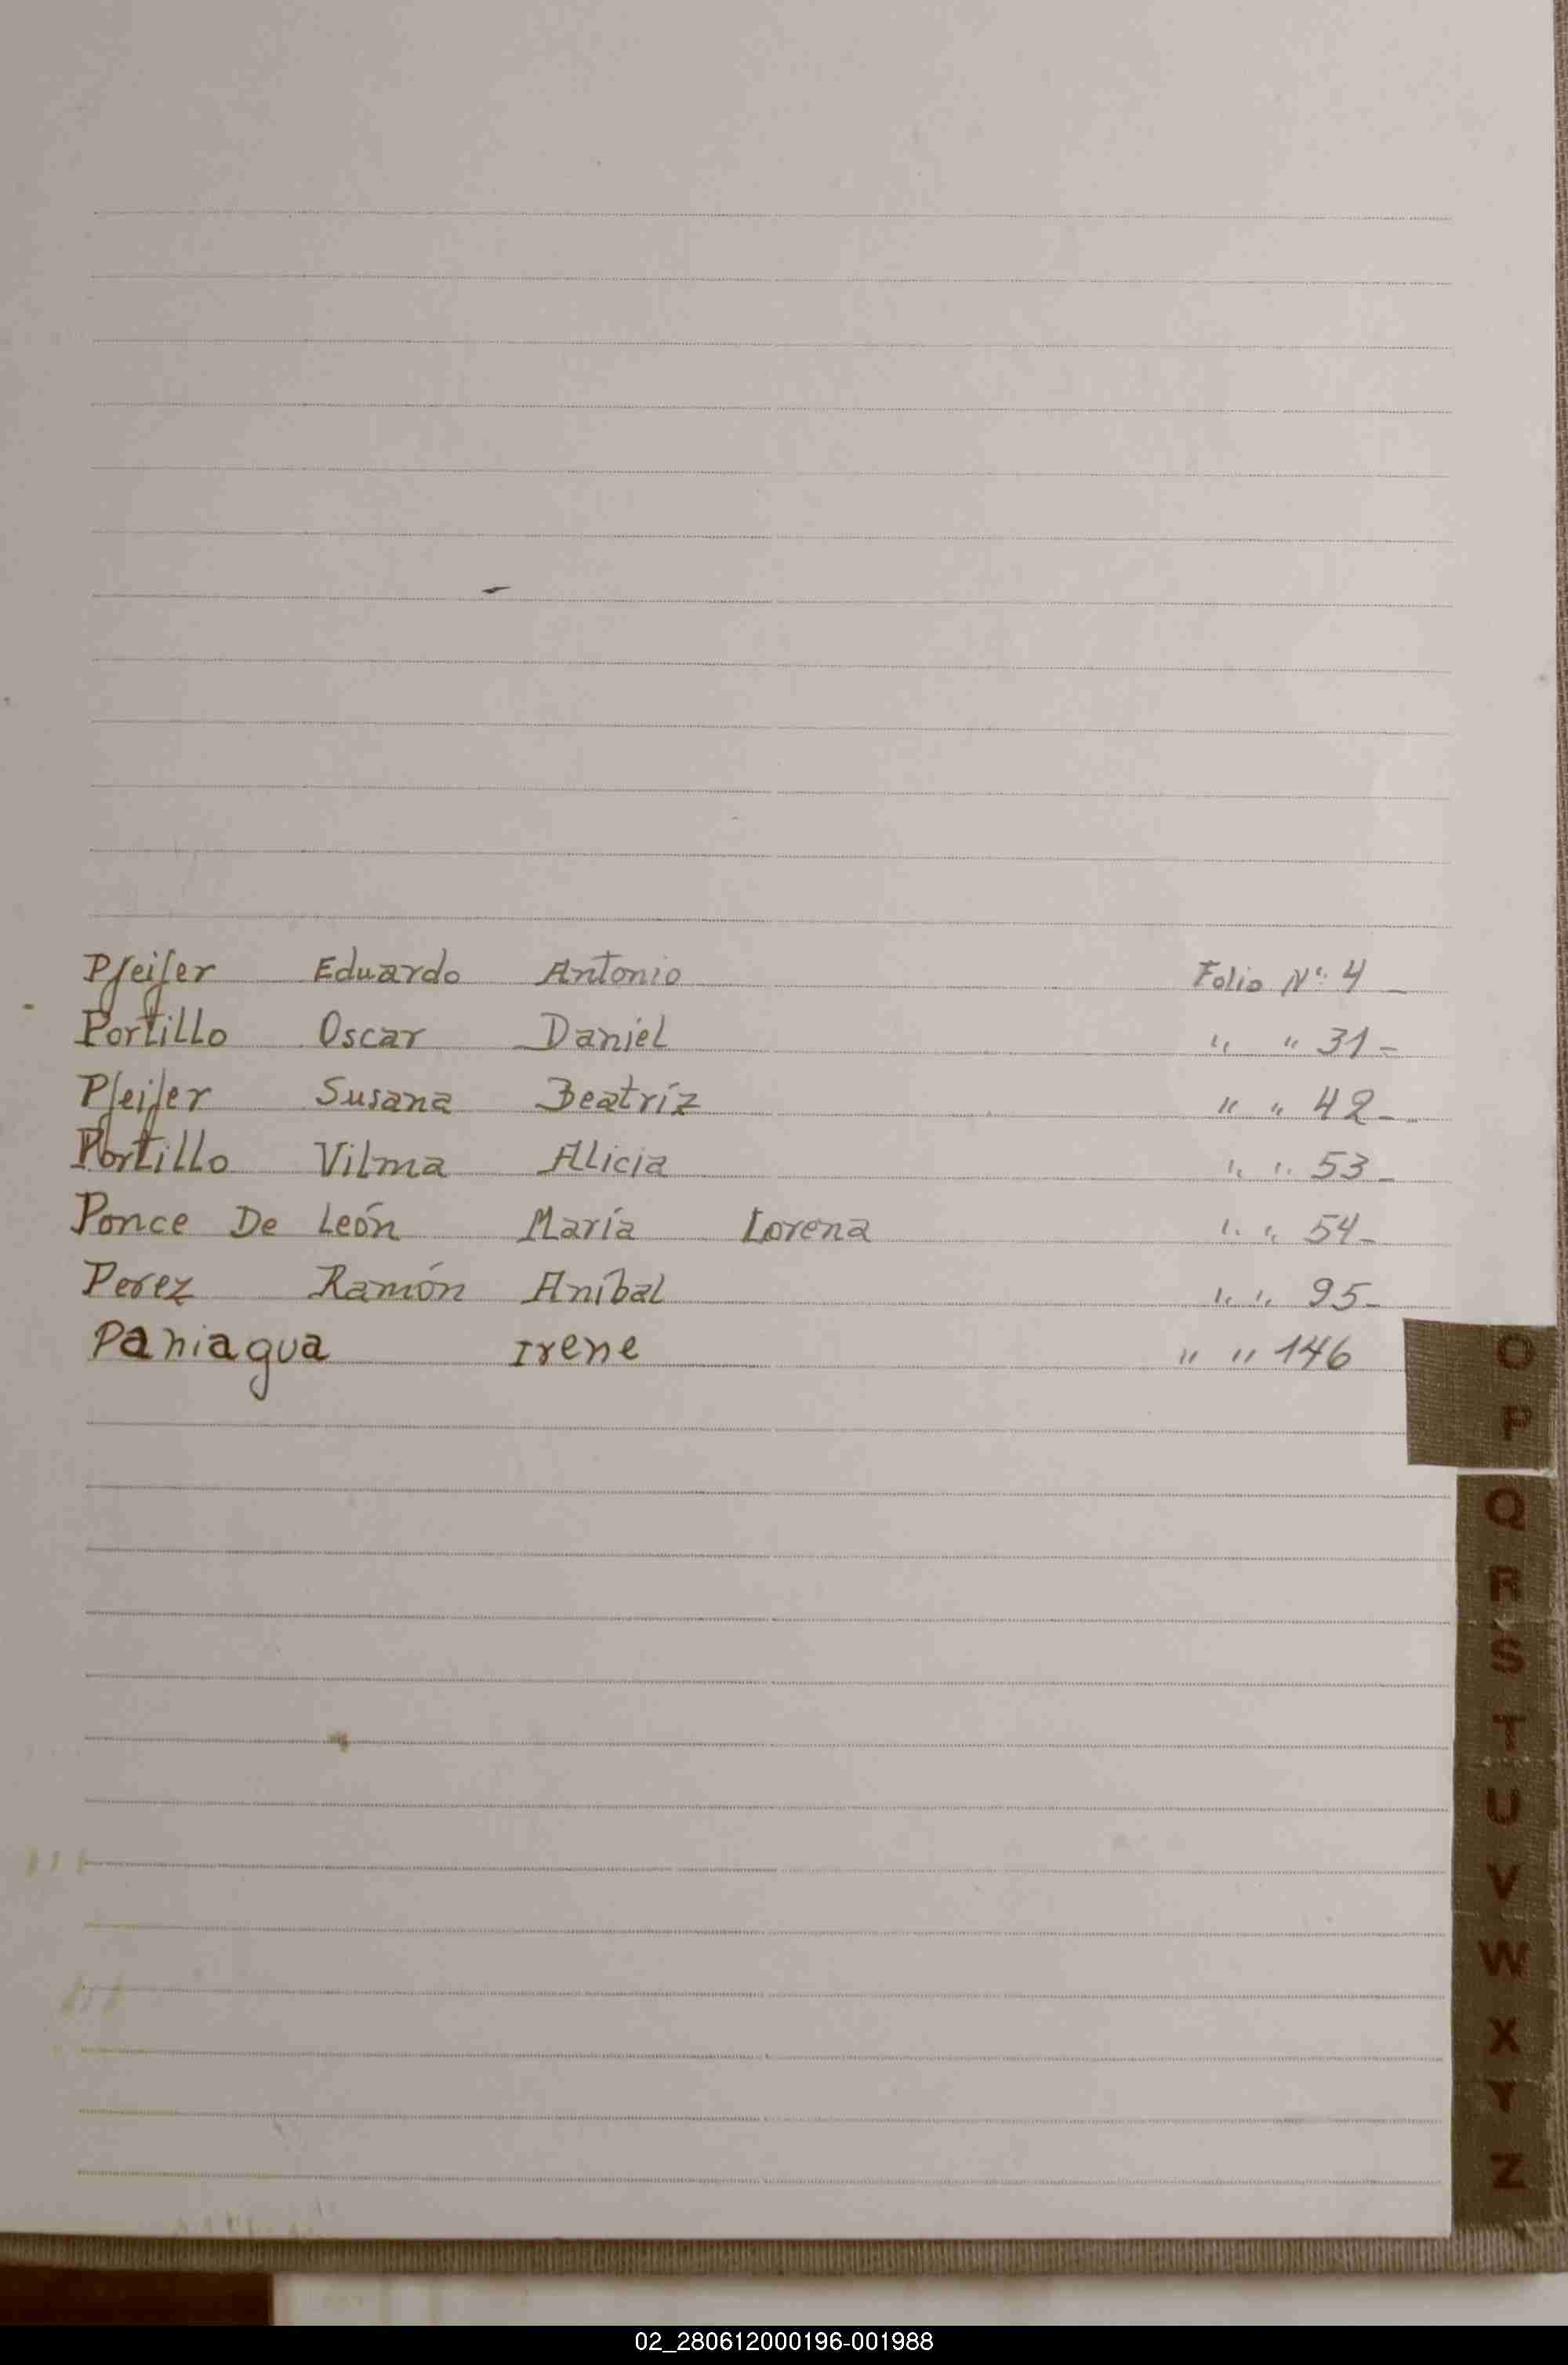 Pfeifer Eduardo Antonio Folio Nº. 4 -
Portillo Oscar Daniel " " 31 -
Pfeifer Susana Beatríz " " 42 -
Portillo Vilma Alicia " " 53 -
Ponce De León María Lorena " " 54 -
Perez Ramón Aníbal " " 95 -
Paniagua Irene " " 146
O
P
Q
R
S
T
U
V
W
X
Y
Z
02_280612000196-001988